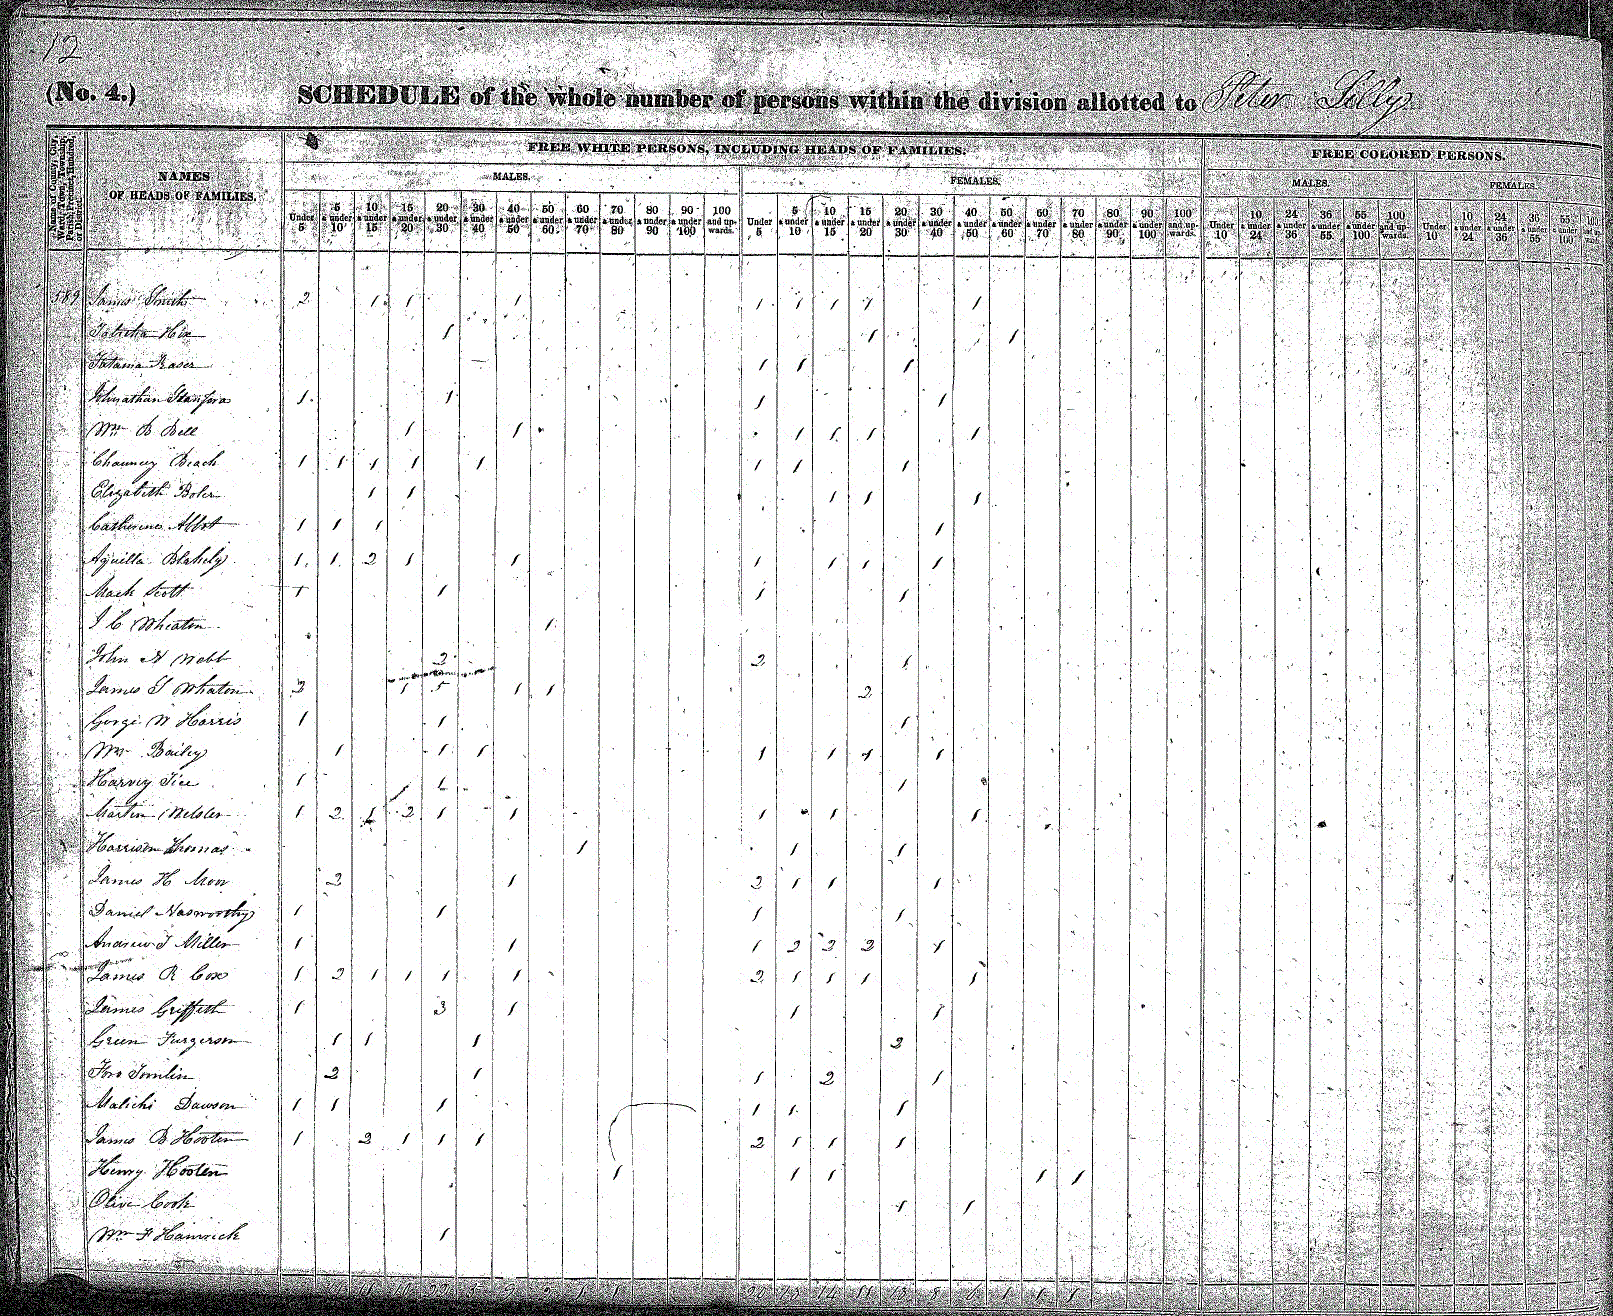 12
(No. 4.) SCHEDULE of the whole number of persons within the division allotted to Peter Lilly
Name of County, City, Ward, Town, Township, Parish, Precinct, Hundred, or District.
NAMES OF HEADS OF FAMILIES.
FREE WHITE PERSONS, INCLUDING HEADS OF FAMILIES.
FREE COLORED PERSONS.
MALES. FEMALES. MALES. FEMALES.
Under 5 5 & under 10 10 & under 15 15 & under 20 20 & under 30 30 & under 40 40 & under 50 50 & under 60 60 & under 70 70 & under 80 80 & under 90 90 & under 100 100 and upwards. Under 5 5 & under 10 10 & under 15 15 & under 20 20 & under 30 30 & under 40 40 & under 50 50 & under 60 60 & under 70 70 & under 80 80 & under 90 90 & under 100 100 and upwards. Under 10 10 & under 24 24 & under 36 36 & under 55 55 & under 100 100 and upwards. Under 10 10 & under 24 24 & under 36 36 & under 55 55 & under 100
589 James Smith 2 1 1 1 1 1 1 1 1
Hix 1 1 1
1 1 1
Johnathan 1 1 1 1
Wm B Bell 1 1 1 1 1 1
Chauncey Beach 1 1 1 1 1 1 1 1
Elizabeth Boler 1 1 1 1 1
Catherine Abbot 1 1 1 1
Aquilla Blakely 1 1 2 1 1 1 1 1 1
Mack Scott 1 1 1 1
I C Wheaton 1
John H Webb 2 2 1
James T Whaton 2 1 5 1 1 2
Gorge W Harris 1 1 1
Wm Bailey 1 1 1 1 1 1 1
Harvey Tice 1 1 1
Martin Webster 1 2 1 2 1 1 1 1 1
Harrison Thomas 1 1 1
James H 2 1 2 1 1 1
Daniel Nasworthy 1 1 1 1
Andrew J Miller 1 1 1 2 2 2 1
James R Cox 1 2 1 1 1 1 2 1 1 1 1
James Griffeth 1 3 1 1 1
Green Furgerson 1 1 1 2
Tomlin 2 1 1 2 1
Malichi Dawson 1 1 1 1 1 1
James B Hooten 1 2 1 1 1 2 1 1 1
Henry Hooten 1 1 1 1 1
Olive Cook 1 1
Wm F Hamrick 1